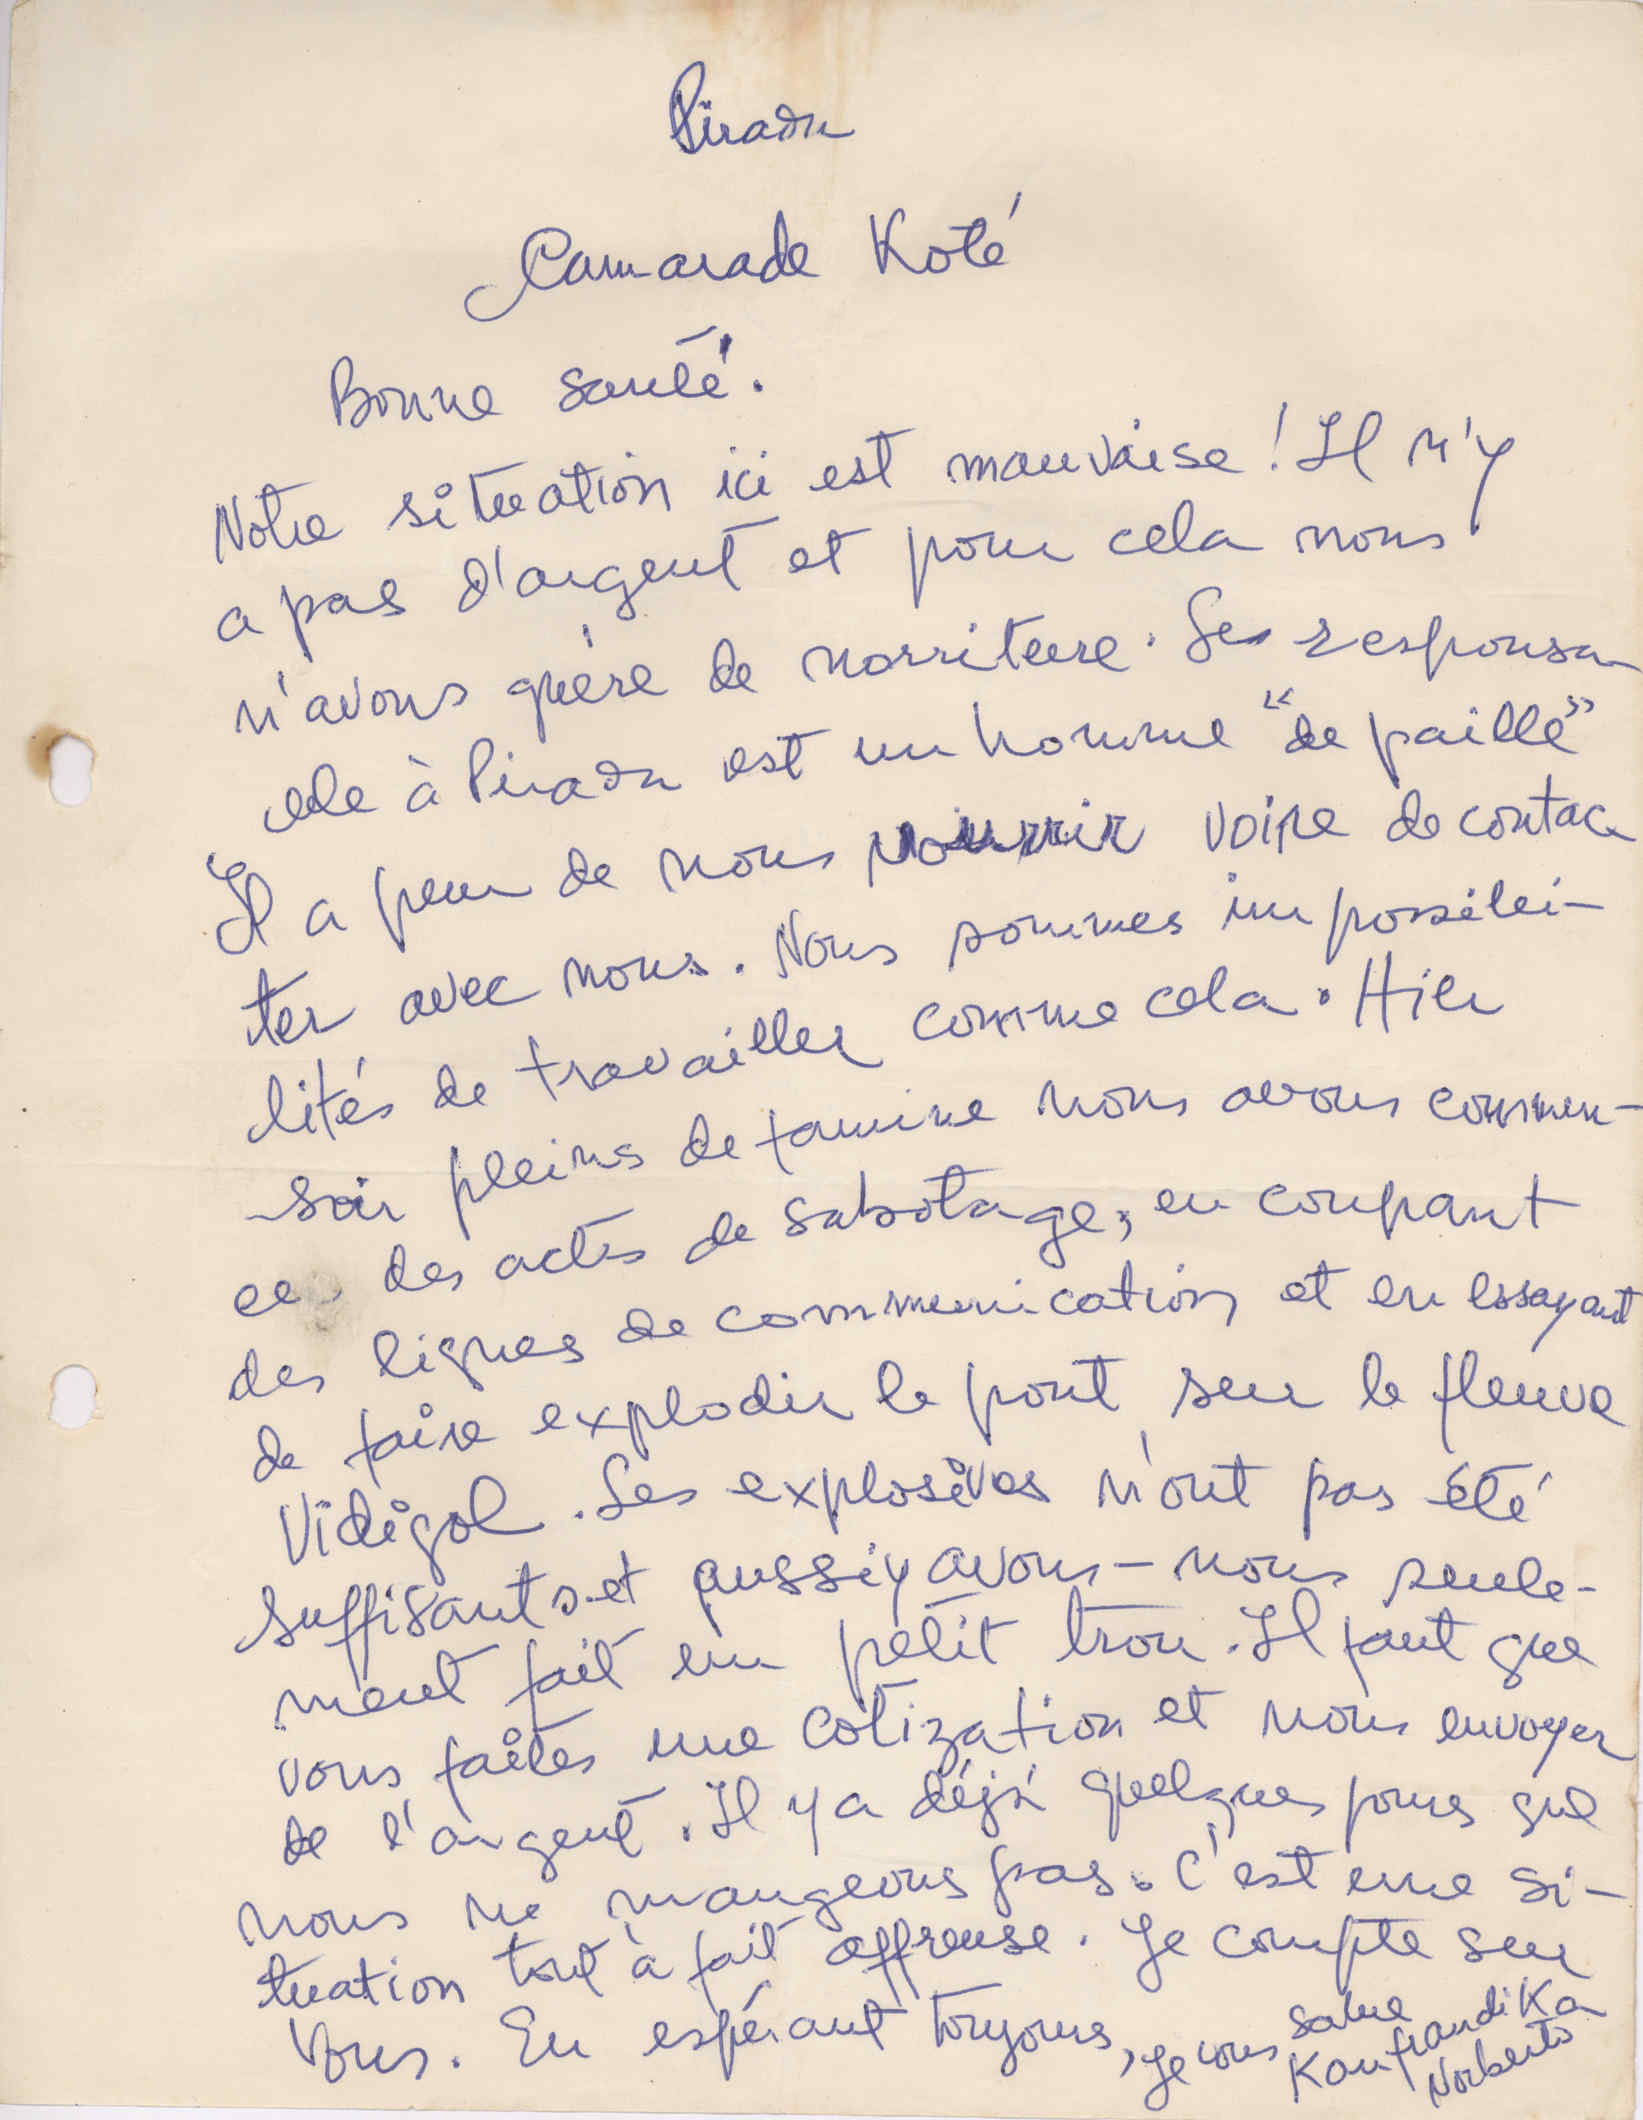 Piradn
Camarade Koté
Bonne santé.
Notre situation ici est mauvaise! Il n'y
a pas d'argent et pour cela nous
n'avons guère de norriture. Les responsa
ble à Piradn est un homme "de paille"
Il a peur de nous nourrir voire de contac
ter avec nous. Nous sommes impossibi-
lités de travailler comme cela. Hier
soir pleins de famine nous avons commen-
ce des actes de sabotage, en coupant
des lignes de communication et en essayant
de faire explodir le pont sur le fleuve
Vidigol. Les explosives n'ont pas été
suffisants et aussi y avons-nous seule-
ment fait un petit trou. Il faut que
vous faîtes une cotization et nous envoyer
de l'argent. Il y a déjà quelques jours que
nous ne mangeons pas. C'est une si-
tuation tout à fait affreuse. Je compte sur
Vous. En espérant toujours, je vous salue
Kanfrandi Ka
Norberto